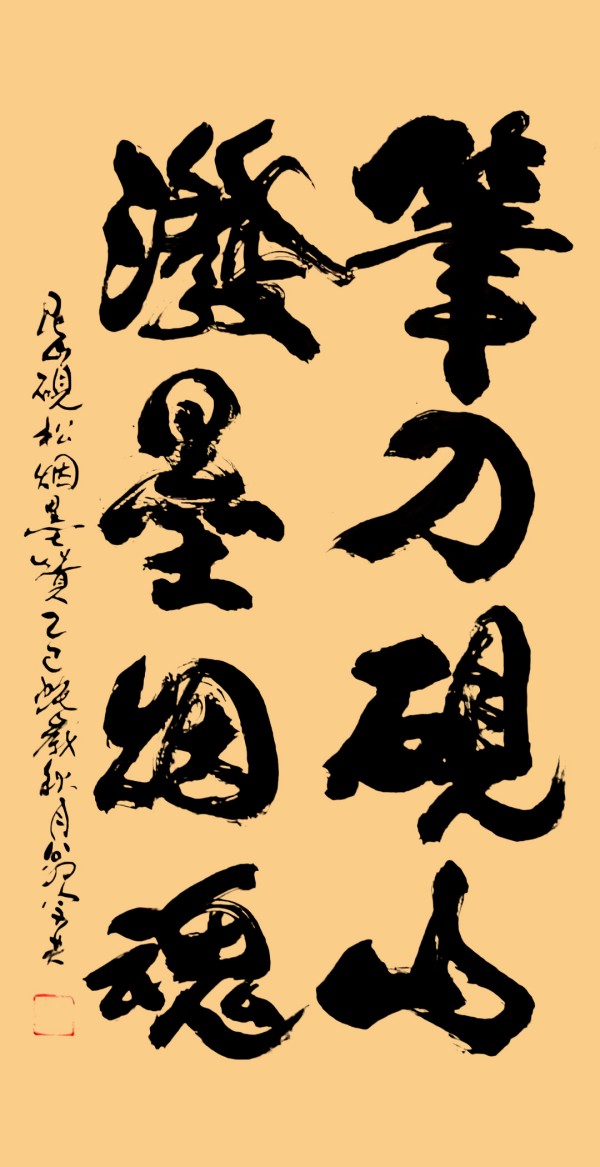 筆刀硯山
潑墨烟魂
山硯松烟墨贊乙巳蛇歲秋月